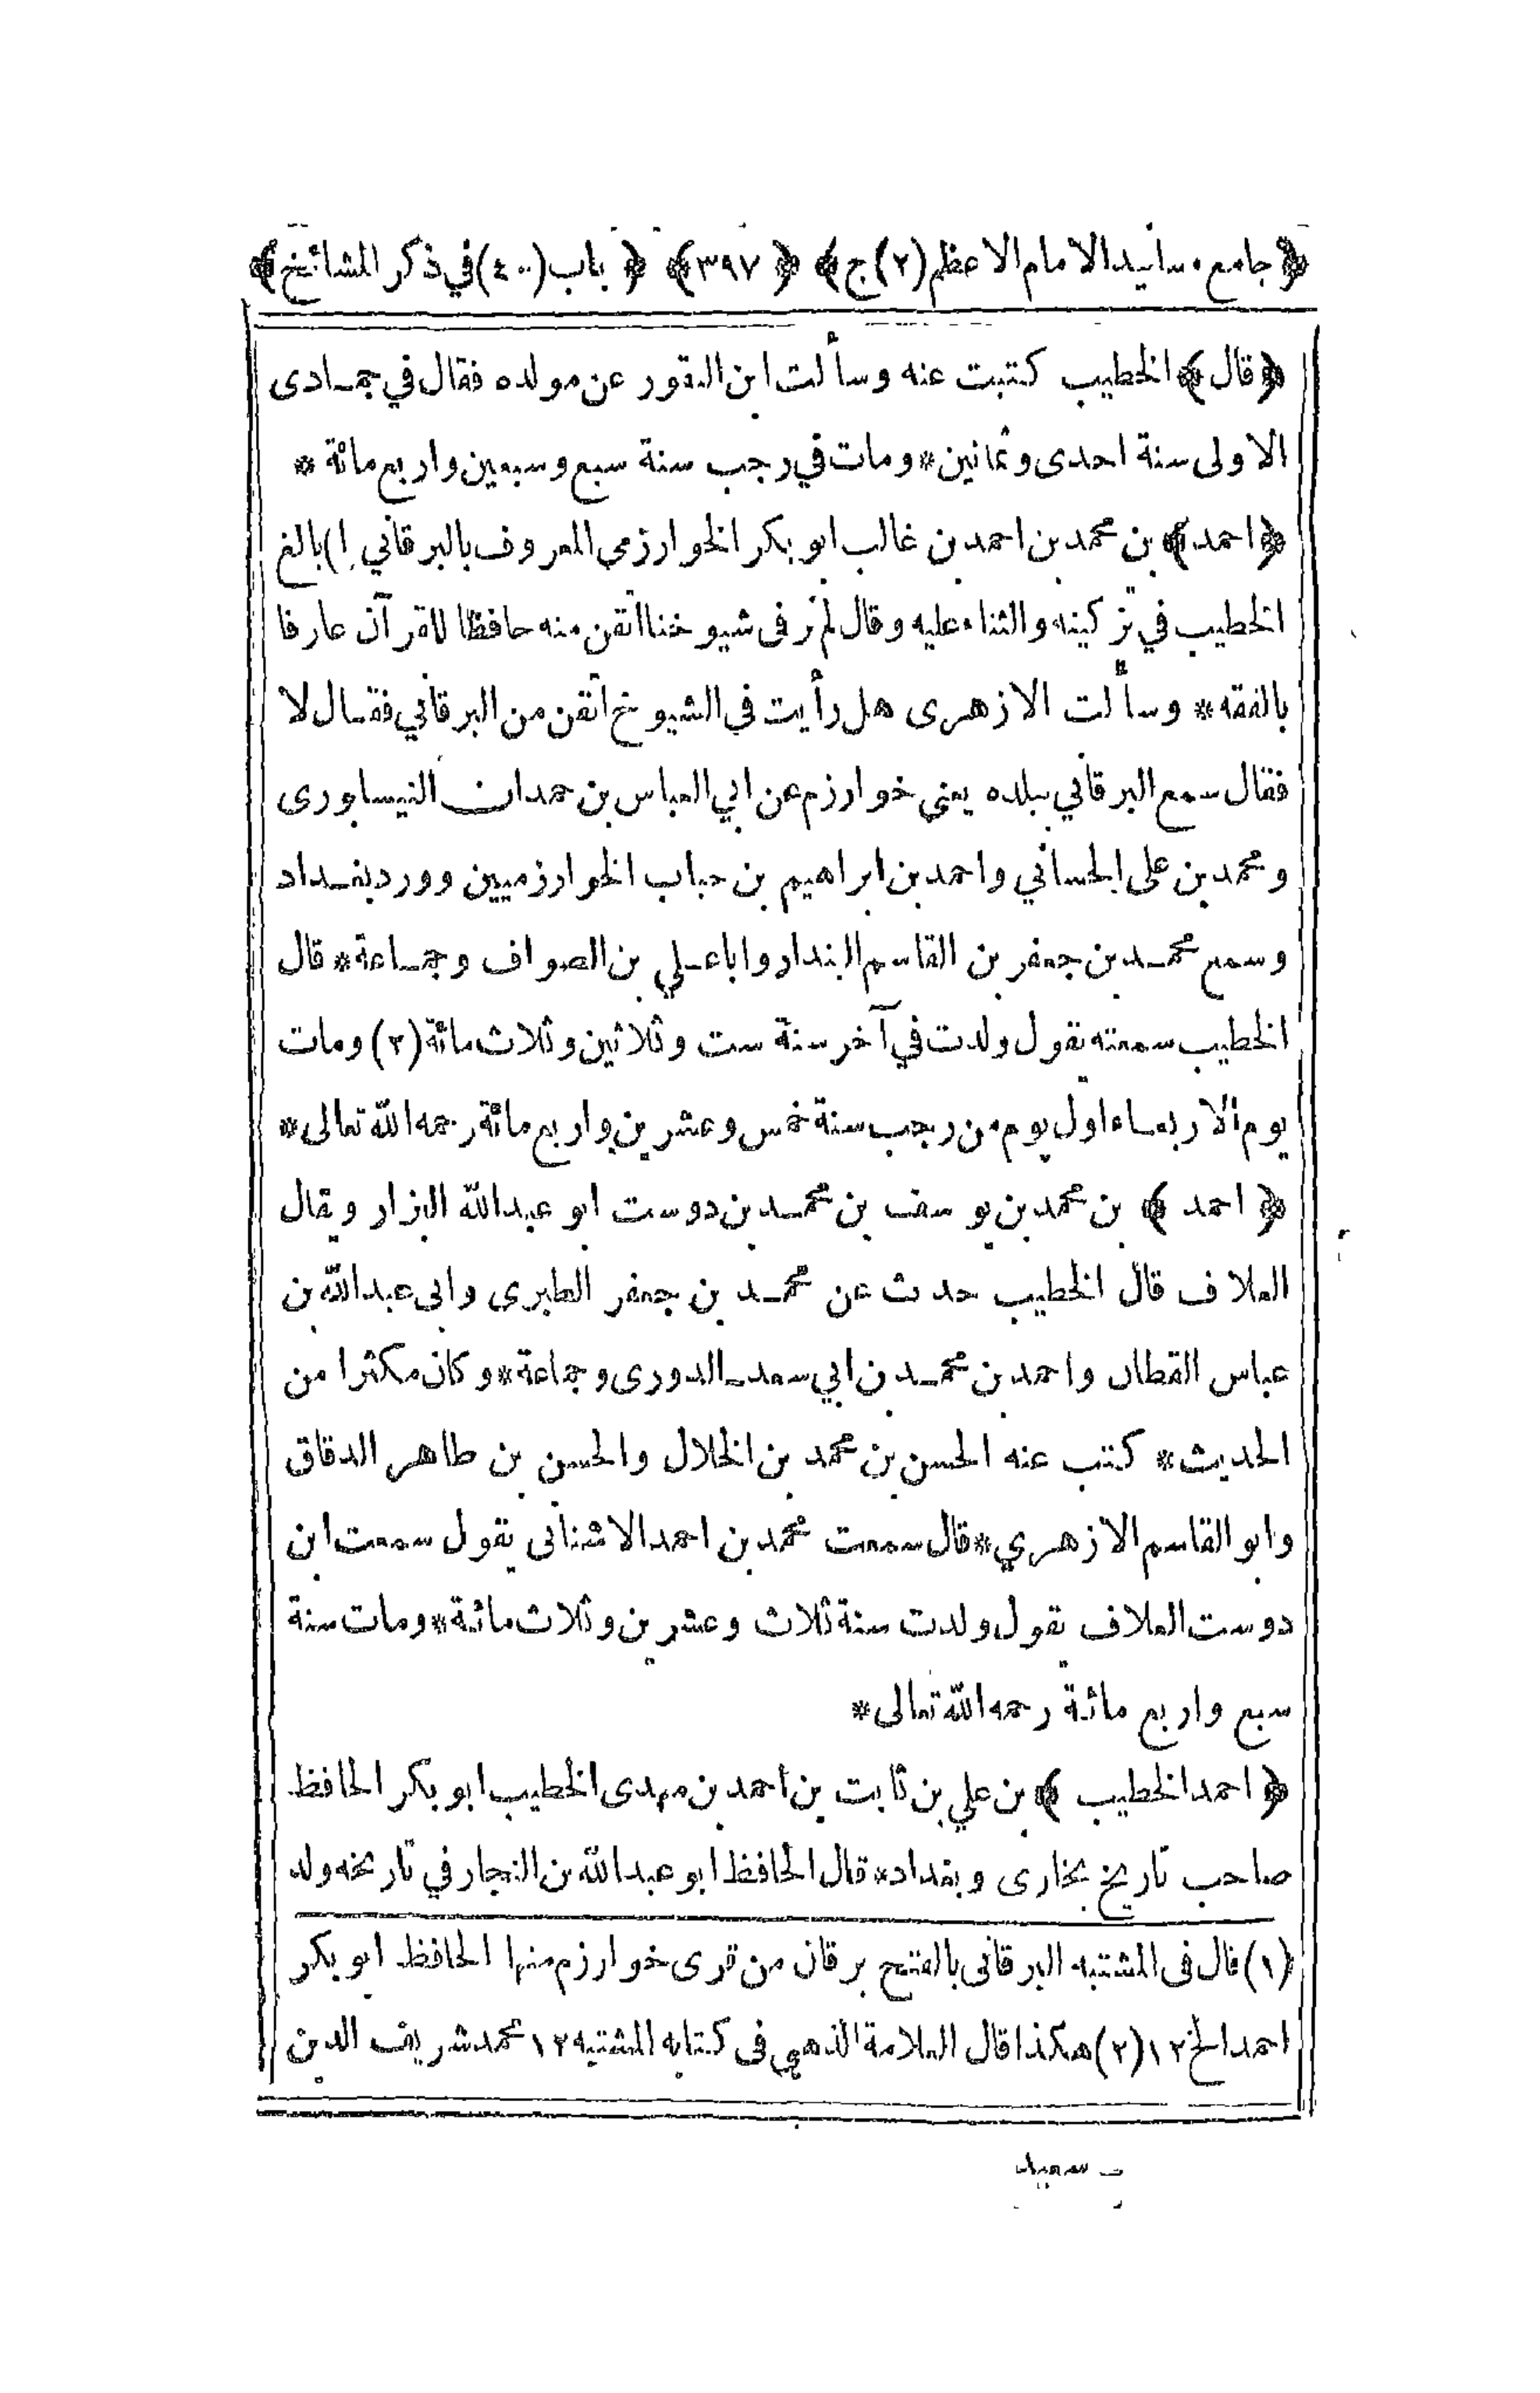 ﴿جامع مسانيد الامام الاعظم (٢) ج﴾ ﴿٣٩٧﴾ ﴿باب (٤٠) في ذكر المشائخ﴾
﴿قال﴾ الخطيب كتبت عنه وسألت ابن النقور عن مولده فقال في جمادى
الاولى سنة احدى وثمانين * ومات في رجب سنة سبع وسبعين واربع مائة *
﴿احمد﴾ بن محمد بن احمد بن غالب ابو بكر الخوارزمي المعروف بالبرقاني (١) بالغ
الخطيب في تزكيته والثناء عليه وقال لم نر فى شيوخنا اتقن منه حافظا للقرآن عارفا
بالفقه * وسألت الازهرى هل رأيت في الشيوخ اتقن من البرقاني فقال لا
فقال سمع البرقاني ببلده يعني خوارزم عن ابي العباس بن حمدان النيسابورى
ومحمد بن على الحساني واحمد بن ابراهيم بن حباب الخوارزميين وورد بغداد
وسمع محمد بن جعفر بن القاسم البندار وابا علي بن الصواف وجماعة * قال
الخطيب سمعته يقول ولدت في آخر سنة ست وثلاثين وثلاث مائة (٢) ومات
يوم الاربعاء اول يوم من رجب سنة خمس وعشرين واربع مائة رحمه الله تعالى *
﴿احمد﴾ بن محمد بن يوسف بن محمد بن دوست ابو عبد الله البزار ويقال
العلاف قال الخطيب حدث عن محمد بن جعفر الطبرى وابى عبد الله بن
عباس القطان واحمد بن محمد بن ابي سعد الدورى وجماعة * وكان مكثرا من
الحديث * كتب عنه الحسن بن محمد بن الخلال والحسن بن طاهر الدقاق
وابو القاسم الازهري * قال سمعت محمد بن احمد الاشنانى يقول سمعت ابن
دوست العلاف يقول ولدت سنة ثلاث وعشرين وثلاث مائة * ومات سنة
سبع واربع مائة رحمه الله تعالى *
﴿احمد الخطيب﴾ بن علي بن ثابت بن احمد بن مهدى الخطيب ابو بكر الحافظ
صاحب تاريخ بخارى وبغداد * قال الحافظ ابو عبد الله بن النجار في تاريخه ولد
(١) قال فى المشتبه البرقانى بالفتح برقان من قرى خوارزم منها الحافظ ابو بكر
احمد الخ ١٢ (٢) هكذا قال العلامة الذهبى فى كتابه المشتبه ١٢ محمد شريف الدين
سعيد